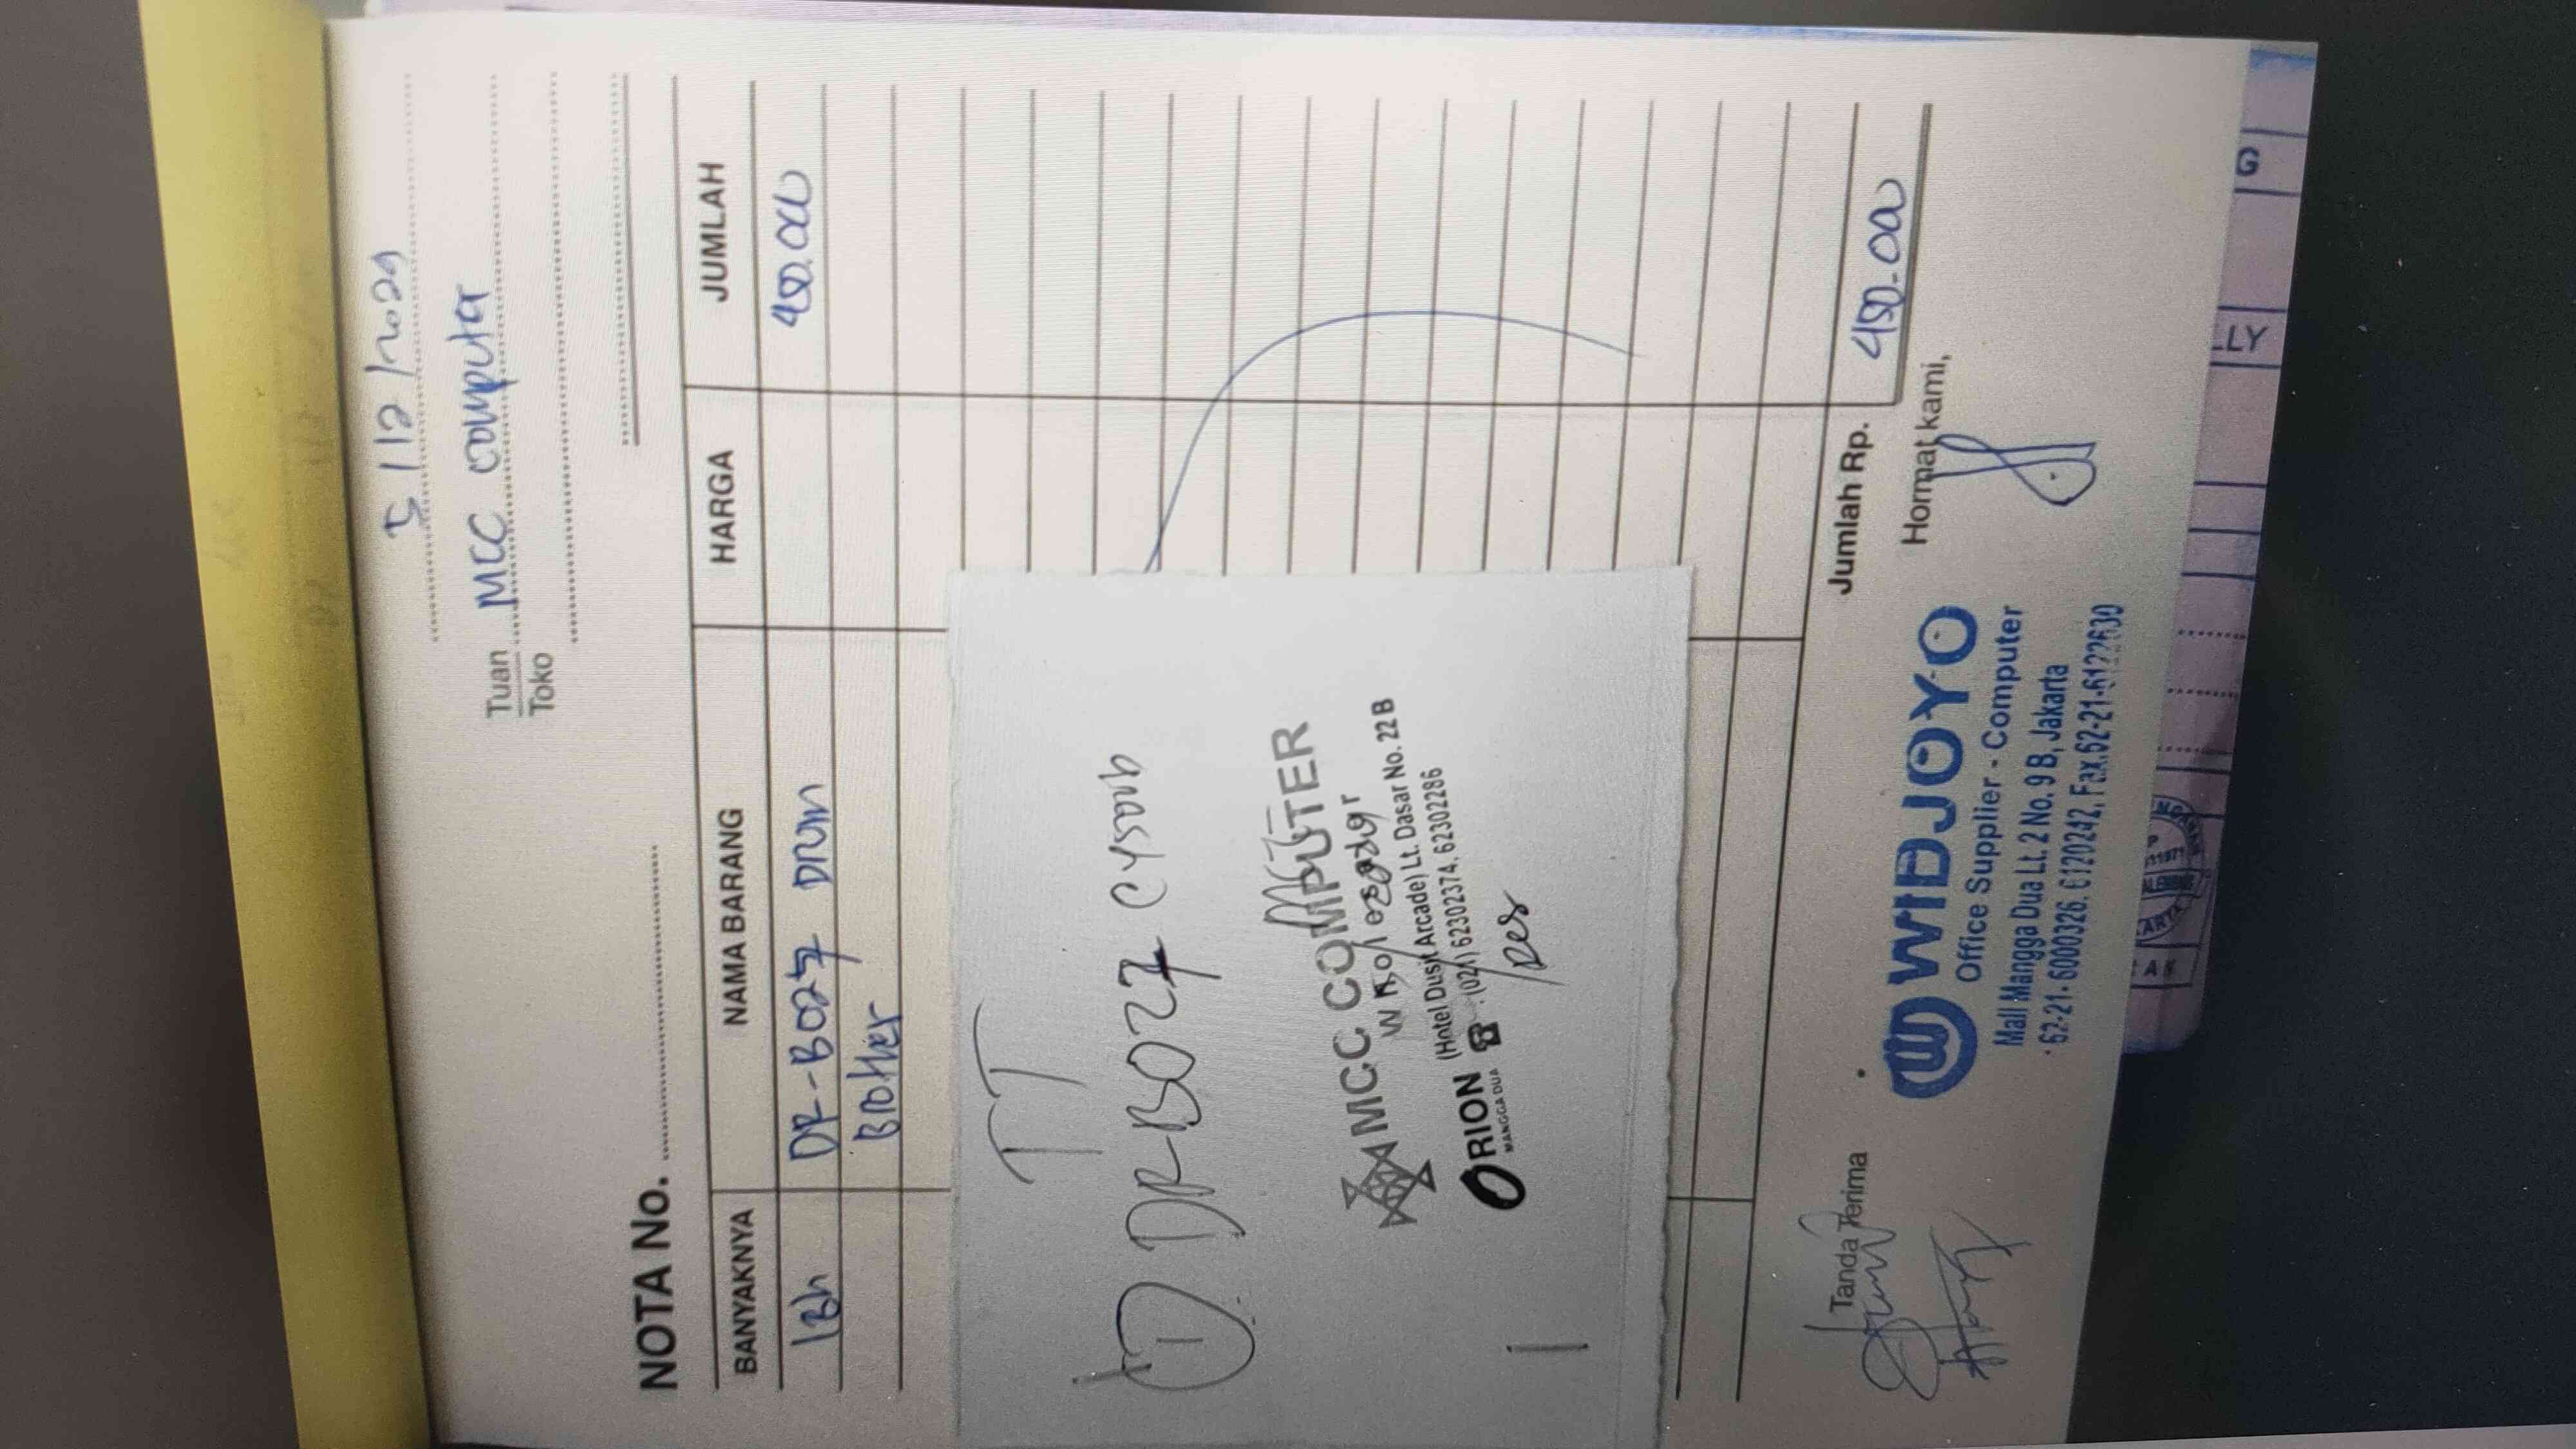 5/12/2024
Tuan MCC computer
Toko
NOTA No.
BANYAKNYA NAMA BARANG HARGA JUMLAH
1Bh DR-B027 Drum 450.000
Brother
TT
1 DR-B027
MCC COMPUTER
(Hotel Dusit Arcade) Lt. Dasar No. 22 B
ORION (021) 62302374, 62302286
MANGGA DUA
Jumlah Rp. 450.000
Tanda Terima Hormat kami,
WIDJOYO
Office Supplier - Computer
Mall Mangga Dua Lt. 2 No. 9 B, Jakarta
62-21-6000326, 6120242, Fax.62-21-6122630
LLY
G